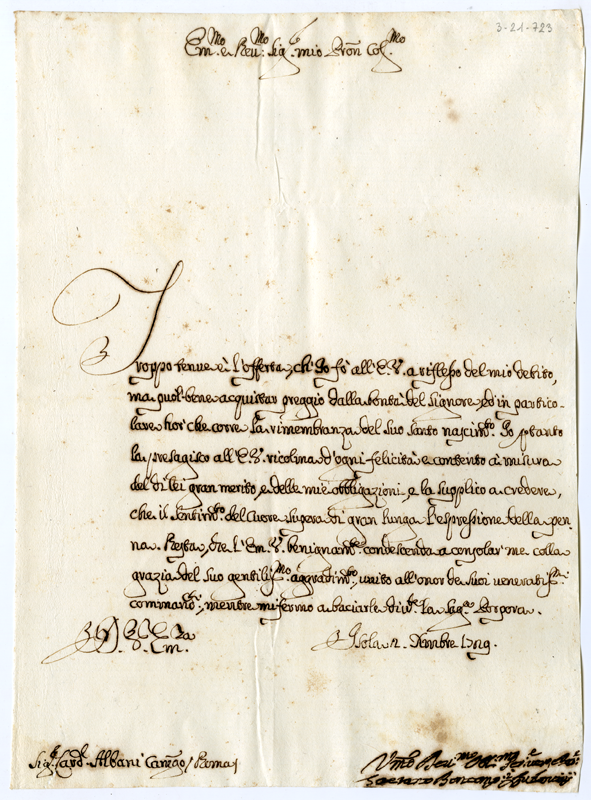 3-21-723
Em.mo e Reu:mo Sig.r mio Pron Col.mo
Troppo tenue è l'offerta, ch' Io fò all' E.V. a riflesso del mio debito,
ma puol bene acquistar preggio dalla bontà del Signore, ed in partico-
lare hor' che corre la rimembranza del Suo Santo nascim.to. Io p tanto
la presagisco all' E.V. ricolma d'ogni felicità e contento à misura
del di lei gran merito, e delle mie obbligazioni, e la supplico a credere,
che il Sentim.to del Cuore Supera di gran lunga l'espressione della pen-
na. Resta, che l'Em. V. benignam.te condescenda a consolar me colla
grazia del Suo gentiliss.mo aggradim.to unito all'onor de Suoi veneratiss.mi
comman.ti, mentre mi fermo a baciarle div.te La Sig.ra Porpora.
Di V. Em.za
Isola 2. Dembre 1719.
Sig.r Card. Albani Camgo / Roma
Vmo Deu.mo Obl.mo
Gaetano